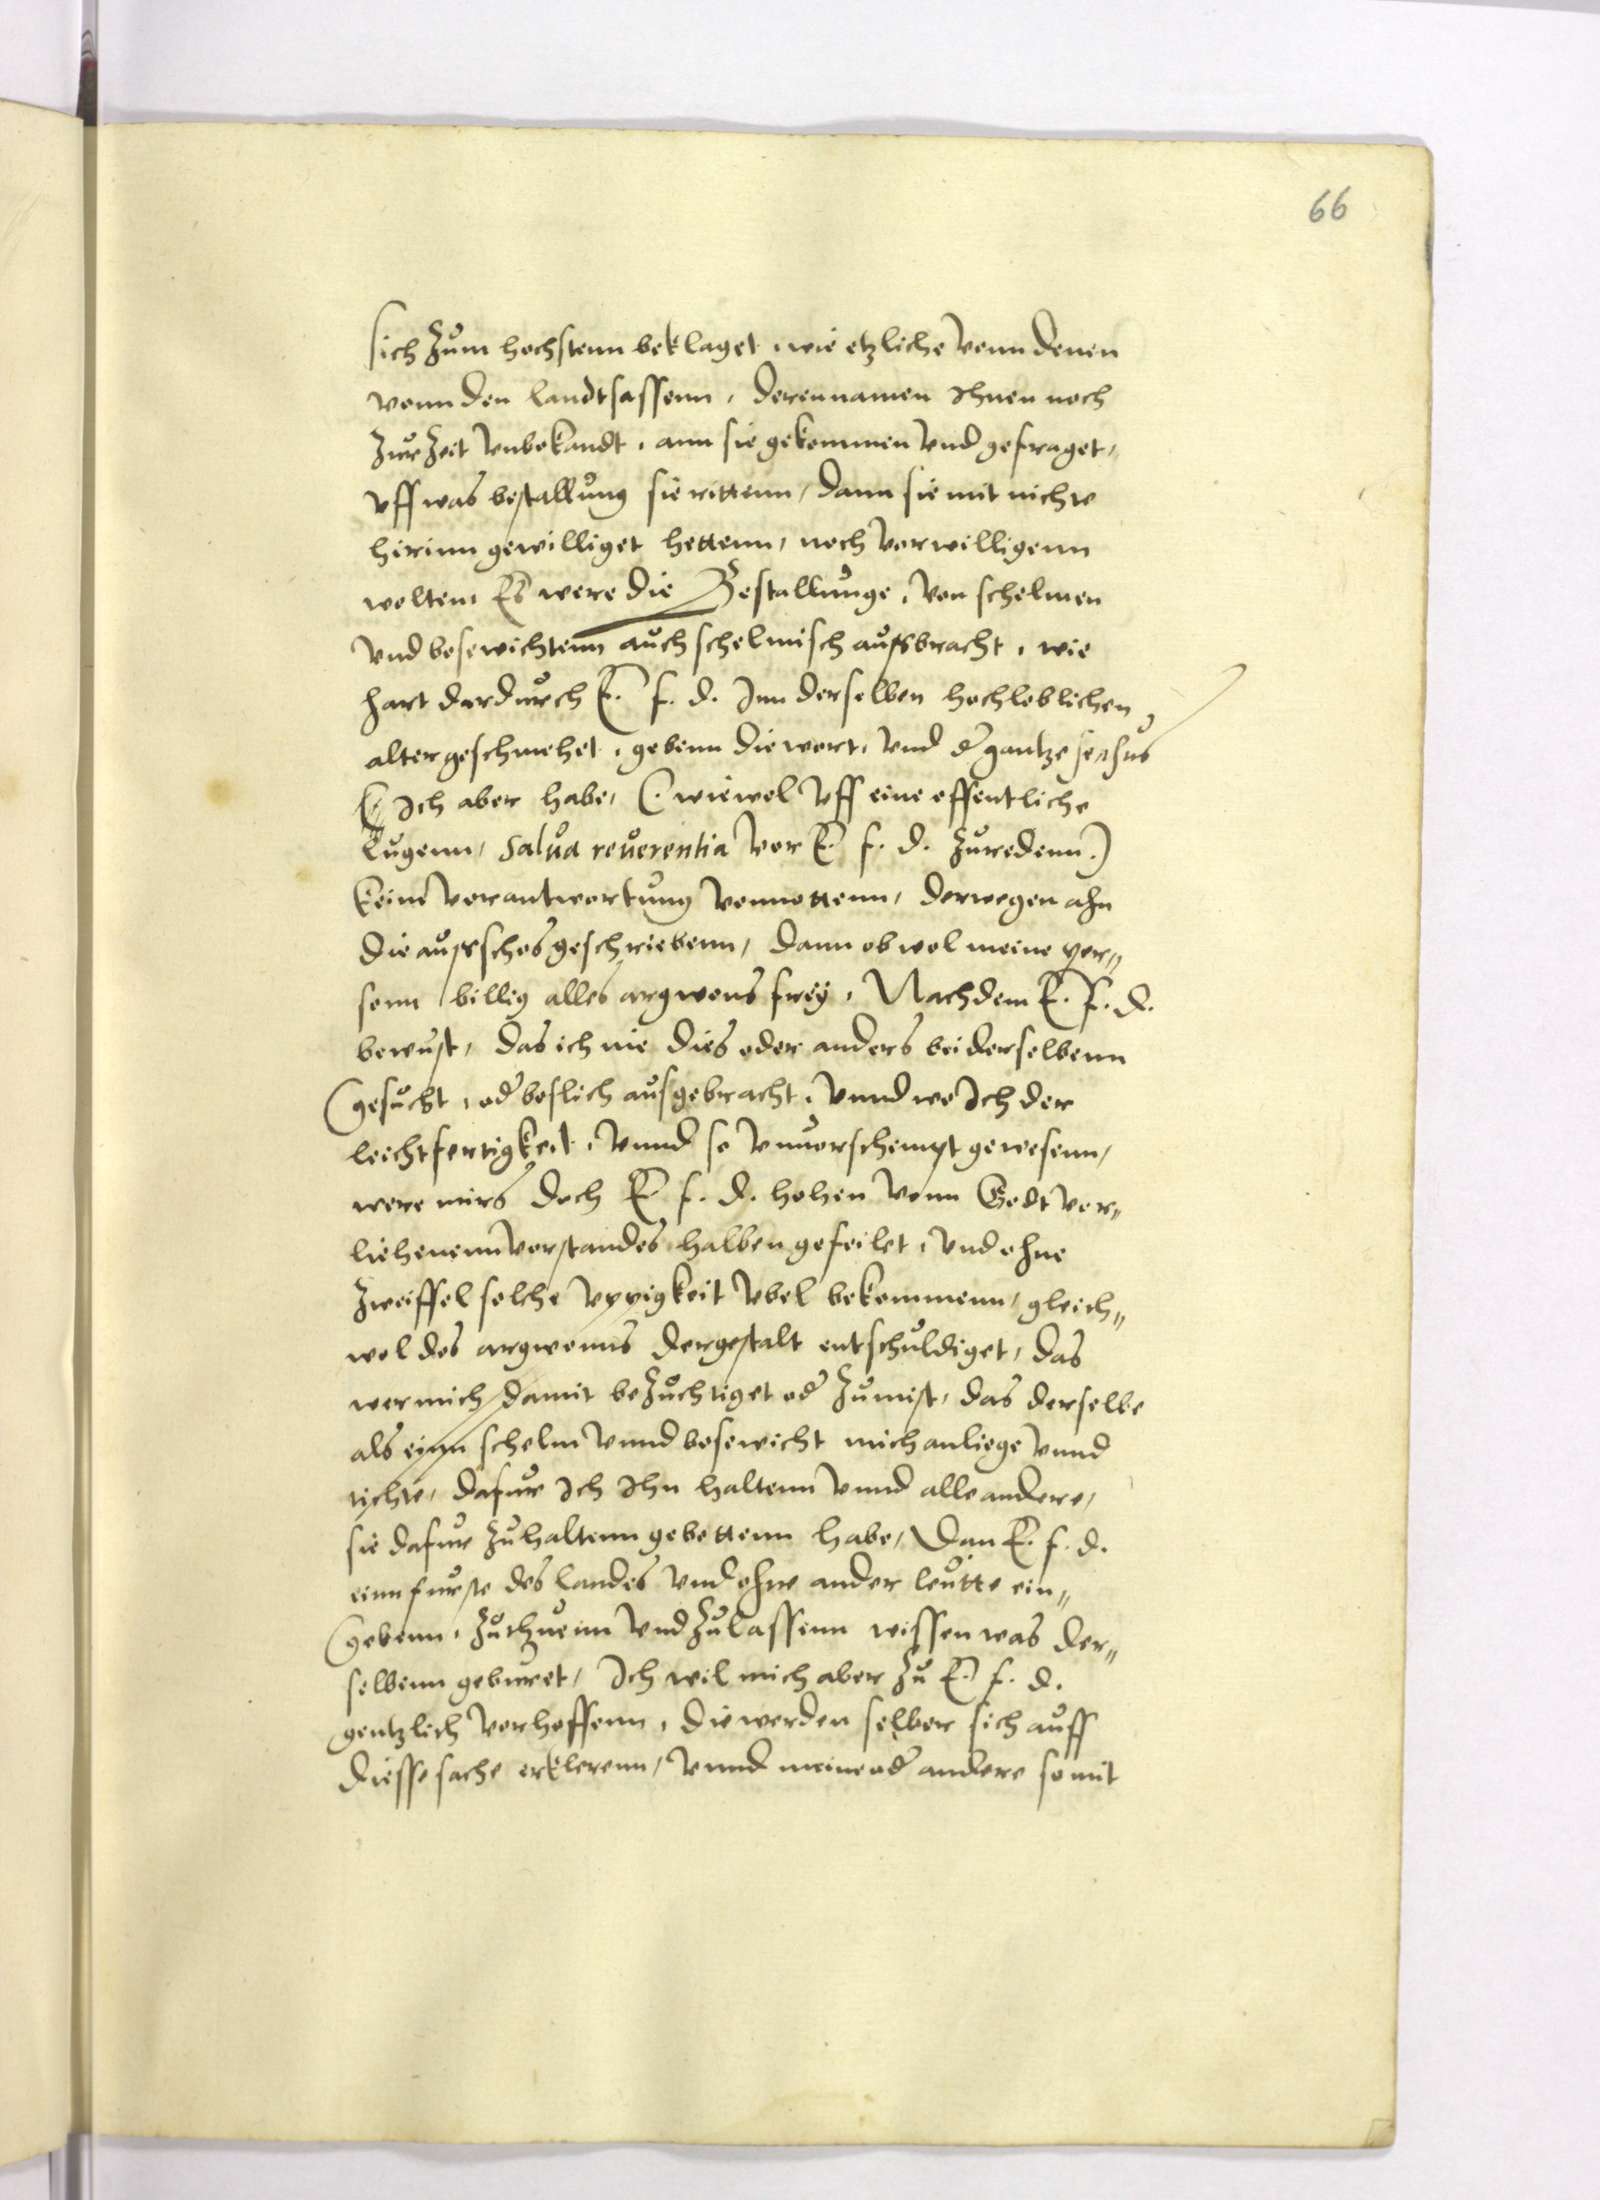 66
sich zum hochstenn beklaget, wie etzliche vonn denen
vonn den landtsassenn, deren namen Ihnen noch
zur Zeit vnbekandt, ann sie gekommen vnd gefraget,
vff was bestallung sie rittenn, dann sie mit nichte
hirinn gewilliget hettenn, noch verwilligenn
wolten, Es were die Bestallunge, von schelmen
vnd bosewichtenn auch schelmisch ausbracht, wie
hart dardurch E. f. d. Inn derselben hochloblichen
alter geschmehet, gebenn die wort, vnd der gantze sensus
Ich aber habe, (wiewol vff eine offentliche
Lugenn, salua reuerentia vor E. f. d. zuredenn)
keine verantwortung vonnottenn, derwegen ahn
die ausschos geschriebenn, dann ob wol meine per"
sonn billig alles argwons frey, Nachdem E. F. d.
bewust, das ich nie dies oder anders bei derselbenn
gesucht, oder boslich ausgebracht, vnnd wo Ich der
leichtfertigkeit, vnnd so vnuorschempt gewesenn,
were mirs doch E. f. d. hohen vonn Gott ver"
liehenenn verstandes halben gefeilet, vnd ohne
zweiffel solche vppigkeit vbel bekommenn, gleich"
wol des argwonns dergestalt entschuldiget, das
wer mich damit bezuchtiget oder zumist, das derselbe
als einn schelm vnnd bosewicht mich anliege vnnd
tichte, dafur Ich Ihn haltenn vnnd alle andere,
sie dafur zuhaltenn gebettenn habe, Dan E. f. d.
einn furste des landes vnd ohne ander leutte ein"
gebenn, zuthuenn vnd zulassenn wissen was der"
selbenn geburet, Ich wil mich aber zu E. f. d.
gentzlich verhoffenn, die werden selber sich auff
diesse sache erklerenn, vnnd meine oder andere so mit